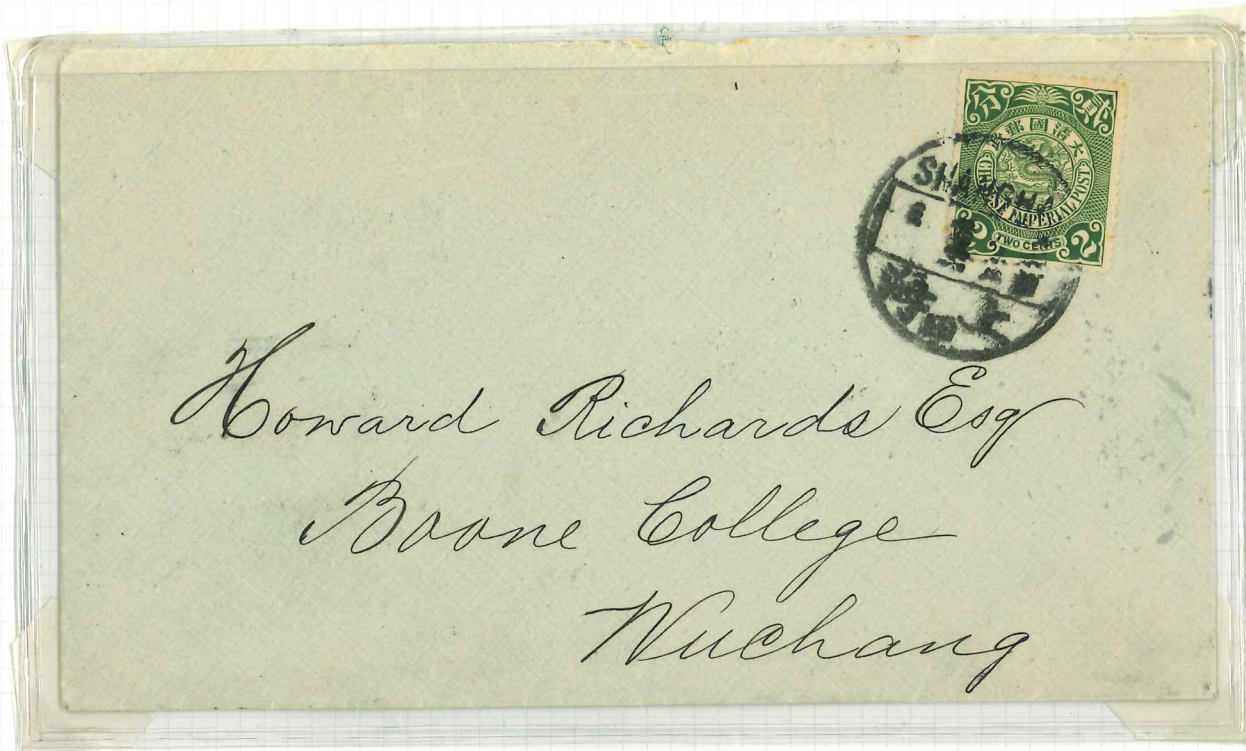 分 貳
大清國郵政
CHINESE IMPERIAL POST
2 TWO CENTS 2
SHANGHAI
上
Howard Richards Esq
Boone College
Wuchang